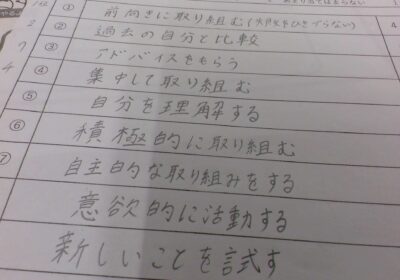 ① 前向きに取り組む(失敗をひきづらない)
② 過去の自分と比較
③ アドバイスをもらう
④ 集中して取り組む
⑤ 自分を理解する
⑥ 積極的に取り組む
⑦ 自主的な取り組みをする
意欲的に活動する
新しいことを試す